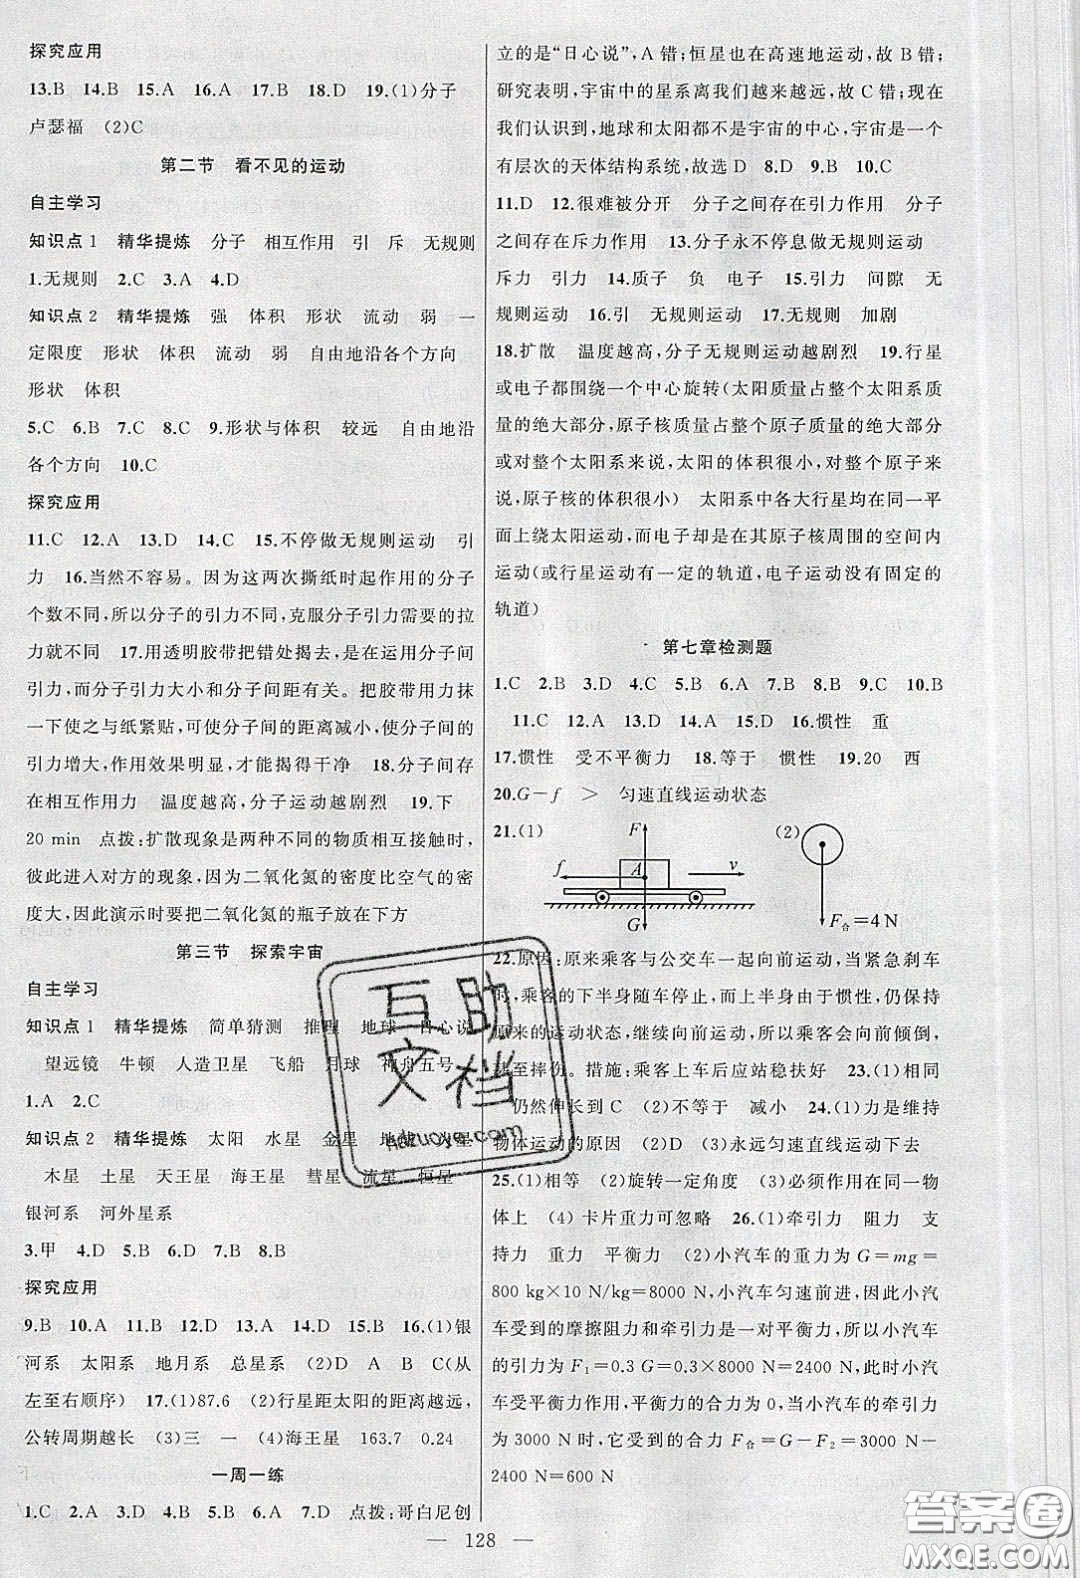 探究应用
13.B 14.B 15.A 16.A 17.B 18.D 19.(1)分子
卢瑟福 (2)C
第二节 看不见的运动
自主学习
知识点1 精华提炼 分子 相互作用 引 斥 无规则
1.无规则 2.C 3.A 4.D
知识点2 精华提炼 强 体积 形状 流动 弱 一
定限度 形状 体积 流动 弱 自由地沿各个方向
形状 体积
5.C 6.B 7.C 8.C 9.形状与体积 较远 自由地沿
各个方向 10.C
探究应用
11.C 12.A 13.D 14.C 15.不停做无规则运动 引
力 16.当然不容易。因为这两次撕纸时起作用的分子
个数不同,所以分子的引力不同,克服分子引力需要的拉
力就不同 17.用透明胶带把错处揭去,是运用分子间
引力,而分子引力大小和分子间距有关。把胶带用力抹
一下使之与纸紧贴,可使分子间的距离减小,使分子间的
引力增大,作用效果明显,才能揭得干净 18.分子间存
在相互作用力 温度越高,分子运动越剧烈 19.下
20 min 点拨:扩散现象是两种不同的物质相互接触时,
彼此进入对方的现象,因为二氧化氮的密度比空气的密
度大,因此演示时要把二氧化氮的瓶子放在下方
第三节 探索宇宙
自主学习
知识点1 精华提炼 简单猜测 推理 地球 日心说
望远镜 牛顿 人造卫星 飞船 月球 神舟五号
1.A 2.C
知识点2 精华提炼 太阳 水星 金星 地球 火星
木星 土星 天王星 海王星 彗星 流星 恒星
银河系 河外星系
3.甲 4.D 5.B 6.D 7.B 8.B
探究应用
9.B 10.A 11.B 12.D 13.A 14.D 15.B 16.(1)银
河系 太阳系 地月系 总星系 (2)D A B C(从
左至右顺序) 17.(1)87.6 (2)行星距太阳的距离越远,
公转周期越长 (3)三 一 (4)海王星 163.7 0.24
一周一练
1.C 2.A 3.D 4.B 5.B 6.A 7.D 点拨:哥白尼创
立的是“日心说”,A错;恒星也在高速地运动,故B错;
研究表明,宇宙中的星系离我们越来越远,故C错;现在
我们认识到,地球和太阳都不是宇宙的中心,宇宙是一个
有层次的天体结构系统,故选D 8.D 9.B 10.C
11.D 12.很难被分开 分子之间存在引力作用 分子
之间存在斥力作用 13.分子永不停息做无规则运动
斥力 引力 14.质子 负 电子 15.引力 间隙 无
规则运动 16.引 无规则运动 17.无规则 加剧
18.扩散 温度越高,分子无规则运动越剧烈 19.行星
或电子都围绕一个中心旋转(太阳质量占整个太阳系质
量的绝大部分,原子核质量占整个原子质量的绝大部分
或对整个太阳系来说,太阳的体积很小,对整个原子来
说,原子核的体积很小) 太阳系中各大行星均在同一平
面上绕太阳运动,而电子却是在其原子核周围的空间内
运动(或行星运动有一定的轨道,电子运动没有固定的
轨道)
第七章检测题
1.C 2.B 3.D 4.C 5.B 6.A 7.B 8.B 9.C 10.B
11.C 12.A 13.D 14.A 15.D 16.惯性 重
17.惯性 受不平衡力 18.等于 惯性 19.20 西
20.G－f ＞ 匀速直线运动状态
21.(1) F f A v G (2) F合=4 N
22.原因:原来乘客与公交车一起向前运动,当紧急刹车
时,乘客的下半身随车停止,而上半身由于惯性,仍保持
原来的运动状态,继续向前运动,所以乘客会向前倾倒,
甚至摔伤。措施:乘客上车后应站稳扶好 23.(1)相同
仍然伸长到C (2)不等于 减小 24.(1)力是维持
物体运动的原因 (2)D (3)永远匀速直线运动下去
25.(1)相等 (2)旋转一定角度 (3)必须作用在同一物
体上 (4)卡片重力可忽略 26.(1)牵引力 阻力 支
持力 重力 平衡力 (2)小汽车的重力为G=mg=
800 kg×10 N/kg=8000 N,小汽车匀速前进,因此小汽
车受到的摩擦阻力和牵引力是一对平衡力,所以小汽车
的引力为F1=0.3 G=0.3×8000 N=2400 N,此时小汽
车受平衡力作用,平衡力的合力为0,当小汽车的牵引力
为3000 N时,它受到的合力F合=G－F2=3000 N－
2400 N=600 N
— 128 —
互助
文档
hdzuoye.com
答案圈
MXQE.COM